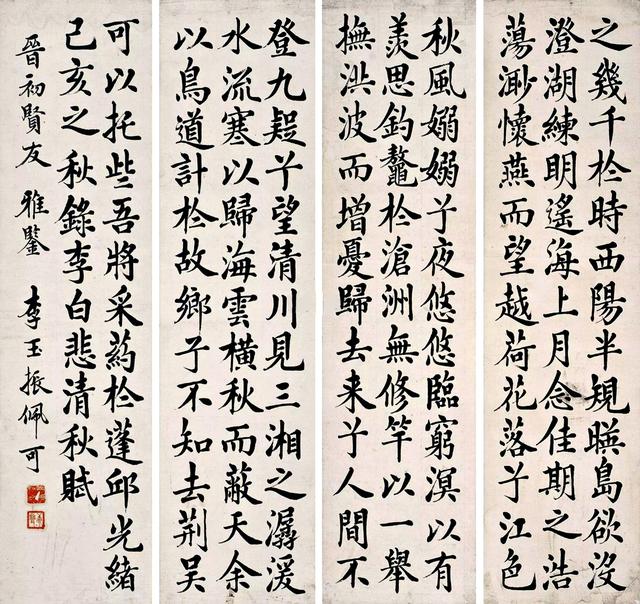 之幾千於時西陽半規暎島欲沒
澄湖練明遙海上月念佳期之浩
蕩渺懷燕而望越荷花落兮江色
秋風嫋嫋兮夜悠悠臨窮溟以有
羨思釣鼇於滄洲無修竿以一舉
撫洪波而增憂歸去来兮人間不
登九疑兮望清川見三湘之潺湲
水流寒以歸海雲橫秋而蔽天余
以鳥道計於故鄉兮不知去荊吳
可以托些吾將采葯於蓬邱光緒
己亥之秋錄李白悲清秋賦
晉初賢友 雅鑒 李玉振佩可